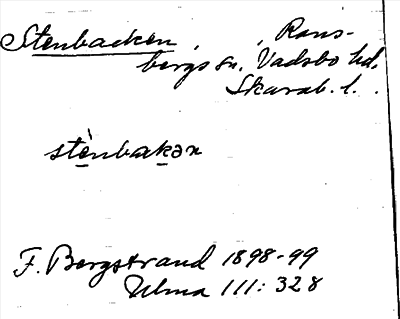 Stenbacken, , Rans-
bergs sn, Vadsbo hd,
Skarab. l.
stè̱nbaḵən
F. Bergstrand 1898-99
Ulma 111: 328